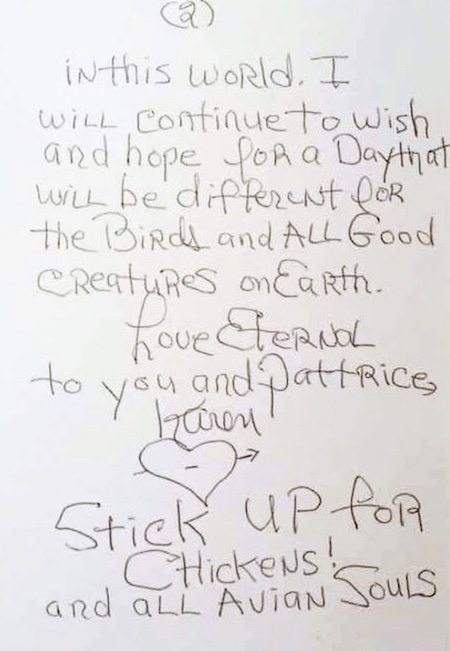 (2)
in this world. I
will continue to wish
and hope for a Day that
will be different for
the Birds and ALL Good
Creatures on Earth.
Love Eternal
to you and Pattrice,
Karen
Stick UP for
CHickens!
and aLL Avian Souls